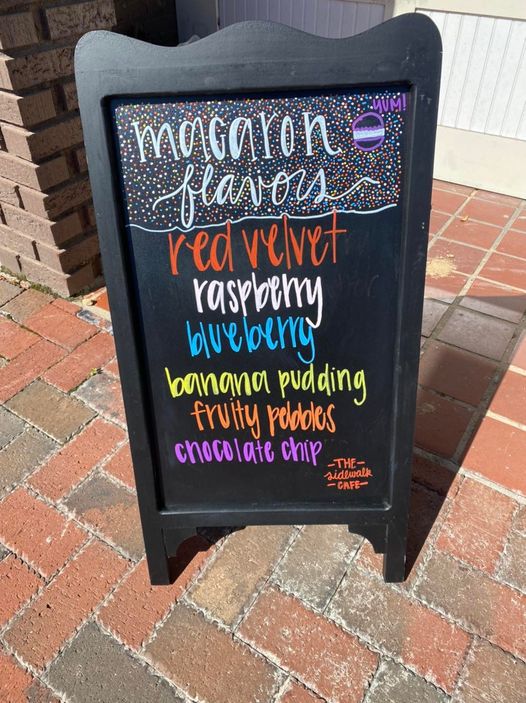 YUM!
macaron
flavors
red velvet
raspberry
blueberry
banana pudding
fruity pebbles
chocolate chip
-THE-
sidewalk
-CAFE-